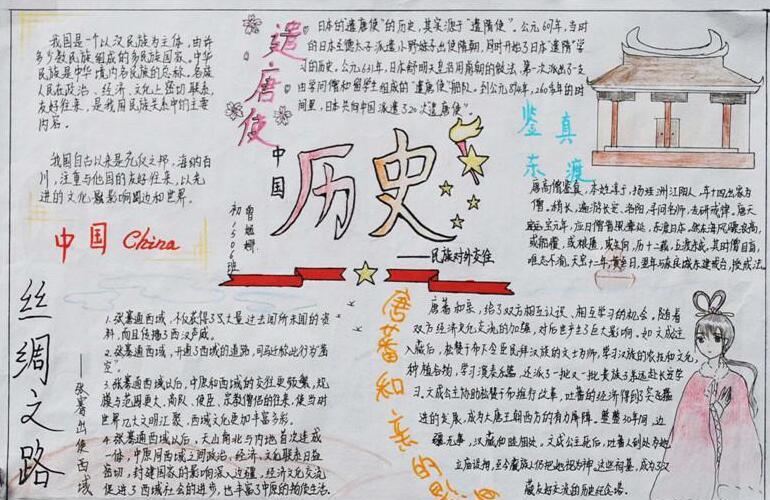 我国是一个以汉民族为主体，由许
多少数民族组成的多民族国家。中华
民族是中华境内各民族的总称。各族
人民在政治、经济、文化上密切联系，
友好往来，是我国民族关系中的主要
内容。
我国自古以来是礼仪之邦，海纳百
川，注重与他国的友好往来，以先
进的文化影响周边和世界。
中国 China
遣唐使
日本的"遣唐使"的历史，其实源于"遣隋使"。公元607年，当时
的日本圣德太子派遣小野妹子出使隋朝，同时开始了日本"遣隋"学
习的历史。公元631年，日本舒明天皇沿用隋朝的做法，第一次派出了支
由学问僧和留学生组成的"遣唐使"船队。到公元894年，260多年的时
间里，日本共向中国派遣了20次遣唐使"。
中国
历史
——民族对外交往
初1506班
鉴真
东渡
唐高僧鉴真，本姓淳于，扬州江阳人，年十四出家为
僧。稍长，遍游长安、洛阳，寻问名师，专研戒律。唐天
丝绸之路
——张骞出使西域
1.张骞通西域，不仅获得了大量过去闻所未闻的资
料，而且传播了西汉声威。
2.张骞通西域，开通了西域的道路，司马迁称此行为"凿
空"。
3.张骞通西域以后，中原和西域的交往更频繁，规
模与范围更大，商队、使臣、宗教僧侣的往来，使当时
世界几大文明汇聚，西域文化更加丰富多彩。
4.张骞通西域以后，天山南北与内地首次连成
一体，中原同西域之间政治、经济、文化联系日益
密切，封建国家的影响深入边疆，经济文化交流
促进了西域社会的进步，也丰富了中原的物质生活。
唐蕃和亲的
唐蕃和亲，给了双方相互认识、相互学习的机会。随着
双方经济文化交流的加强，对后世产生了巨大影响。如文成公主
入藏后，松赞干布下令臣民拜汉族的文士为师，学习汉族的农技和文化，
种植谷物，学习演奏乐器，还派了一批又一批贵族子弟远赴长安学
习。文成公主协助松赞干布推行改革，吐蕃的经济得到了突飞猛
进的发展，成为大唐王朝西方的有力屏障。整整30年间，边
疆无事，汉藏和睦相处。文成公主死后，吐蕃人到处为她
立庙设祠，至今藏族人仍把她视为神